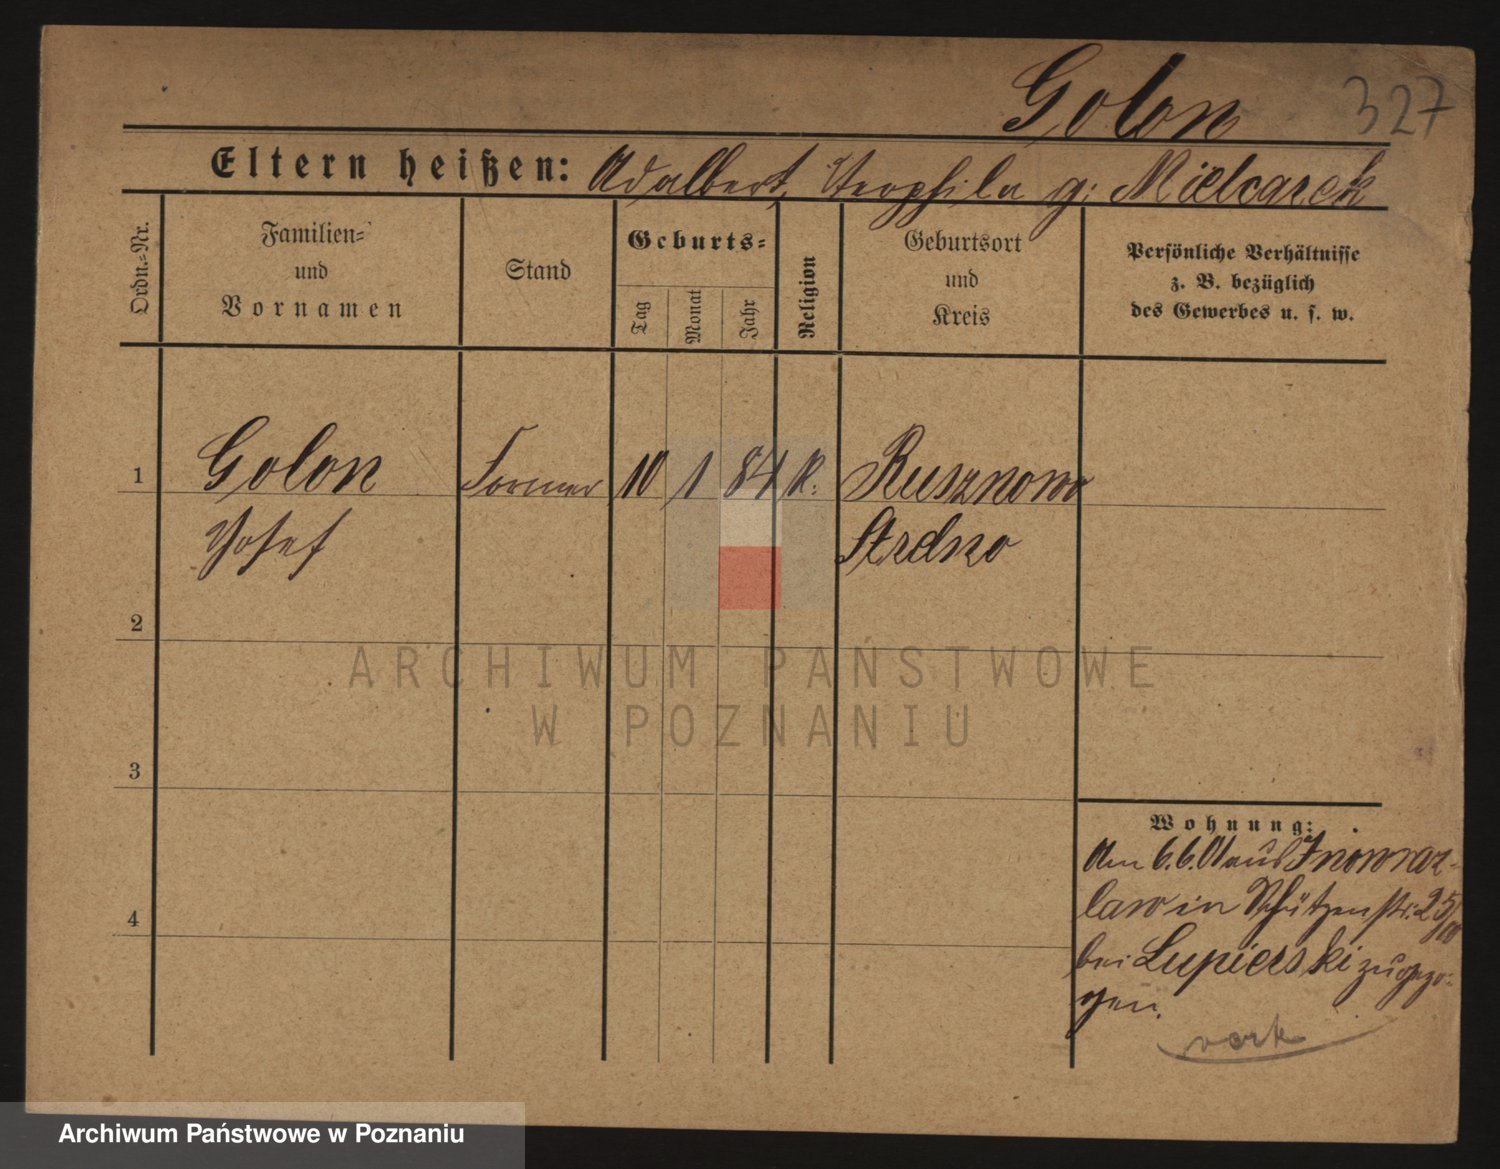 Golon 327
Eltern heißen: Adalbert, Theophila g: Mielcarek
Ordn.-Nr.
Familien-
und
Vornamen
Stand
Geburts-
Tag Monat Jahr
Religion
Geburtsort
und
Kreis
Persönliche Verhältnisse
z. B. bezüglich
des Gewerbes u. s. w.
1 Golon Former 10 1 84 K. Rusznowo
Josef Strelno
2
3
4
Wohnung:
Am 6.6.01 aus Inowraz-
law in Schützenstr. 25/
bei Lupierski zugezo-
gen.
ARCHIWUM PAŃSTWOWE
W POZNANIU
Archiwum Państwowe w Poznaniu